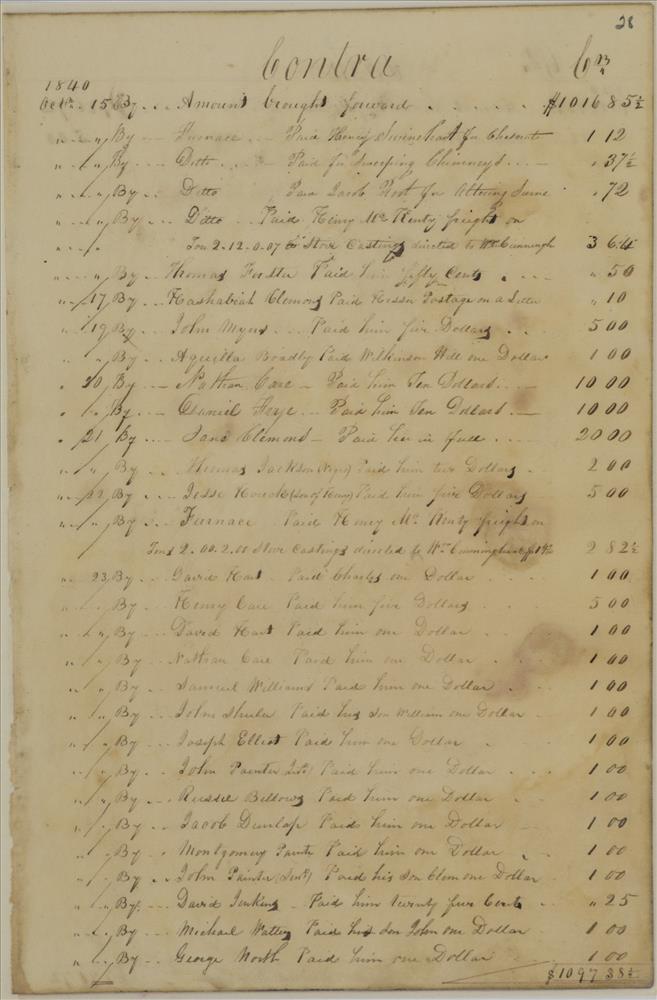 28
Contra Cr
1840
Octr. 15 By .. Amount brought forward . . . . . $1016 85½
" " " By — Furnace .. Paid Henry Swinehart for Chesnut 1 12
" " " By .. Ditto . . . — Paid for Sweeping Chimneys . . . — " 37½
" " " By .. Ditto Paid Jacob Root for Altering " 72
" " " By ... Ditto .. Paid Henry Mc Kenty freight on
" " " Ton 2-12-0-07 lbs Stove Castings directed to Wm Cunningh 3 64
" " " By — Thomas Forster Paid him fifty Cents . . . — " 50
" 17 By — Hashabiah Clemons Paid Postage on a Letter " 10
" 19 By .. John Myers ... Paid him five Dollars . . . 5 00
" " By .. Aquilla Bradly Paid Wilkinson Hill one Dollar 1 00
" 20 By — Nathan Care — Paid him Ten Dollars . . . — 10 00
" " " By — Daniel Feye — Paid him Ten Dollars . — 10 00
" 21 By ... Jane Clemons — Paid her in full . . . . 20 00
" " " By .. Thomas Jackson (Negro) Paid him two Dollars . . 2 00
" 22 By .. Jesse Houck (son of Henry) Paid him five Dollars 5 00
" " " By ... Furnace Paid Henry Mc Kenty freight on
Tons 2.00.2.00 Stove Castings directed to Wm Cunningham 2 82½
" 23 By .. David Hart .. Paid Charles one Dollar . . . 1 00
" " " By .. Henry Care Paid him five Dollars . . . 5 00
" " " By .. David Hart Paid him one Dollar . . . 1 00
" " " By ... Nathan Care Paid him one Dollar . . . 1 00
" " " By .. Samuel Williams Paid him one Dollar . . . 1 00
" " " By ... John Shuler Paid his Son William one Dollar . 1 00
" " " By ... Joseph Elliot Paid him one Dollar . . . 1 00
" " " By .. John Painter Junr) Paid him one Dollar . . . 1 00
" " " By ... Russel Bellows Paid him one Dollar . . . 1 00
" " " By .. Jacob Dunlap Paid him one Dollar — . 1 00
" " " By .. Montgomery Painter Paid him one Dollar . . 1 00
" " " By .. John Painter (Senr) Paid his Son Clem one Dollar . 1 00
" " " By .. David Jenkins .. Paid him twenty five Cents . . " 25
" " " By .. Michael Watters Paid his Son John one Dollar . 1 00
" " " By .. George North Paid him one Dollar . . 1 00
$1097 38½